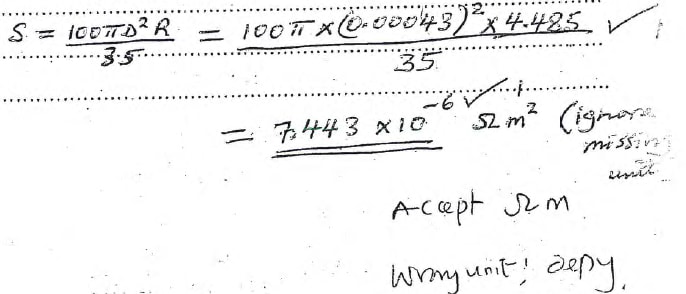 S = 100πD²R / 35 = 100π × (0.00043)² × 4.485 / 35 ✓ 1
= 7.443 × 10⁻⁶ ✓ 1 Ωm² (ignore
missing
unit
Accept Ωm
Wrong unit! deny.